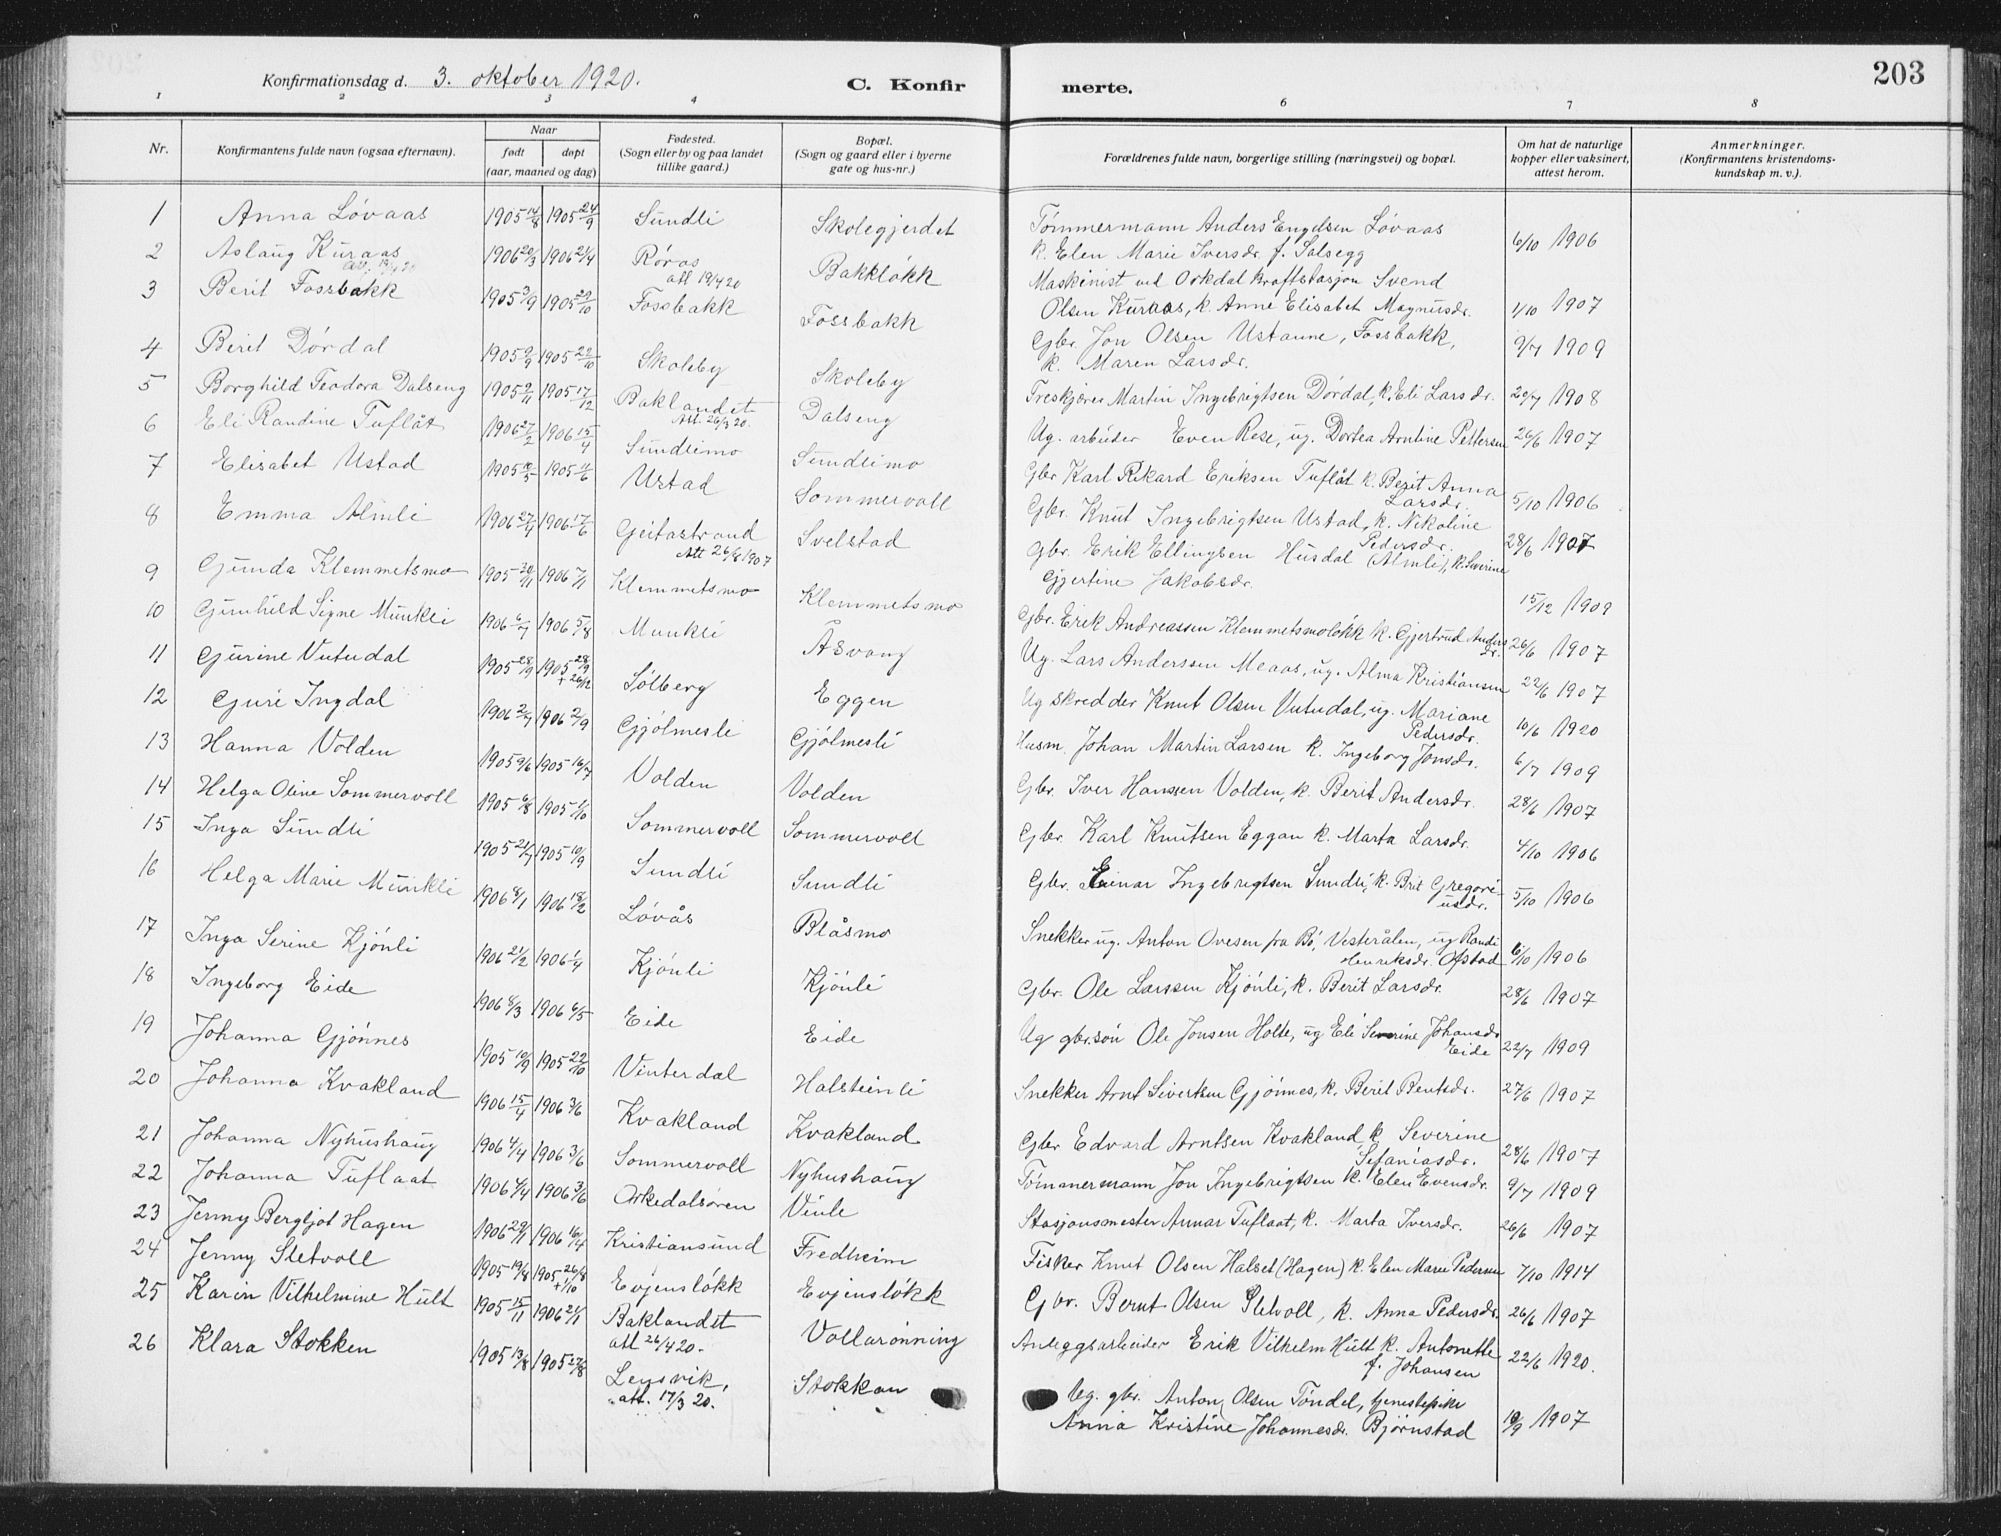 203
Konfirmationsdag d. 3. oktober 1920. C. Konfir merte.
1 2 3 4 6 7 8
Nr. Konfirmantens fulde navn (ogsaa efternavn). Naar født døpt (aar, maaned og dag) Fødested. (Sogn eller by og paa landet tillike gaard.) Bopæl. (Sogn og gaard eller i byerne gate og hus-nr.) Forældrenes fulde navn, borgerlige stilling (næringsvei) og bopæl. Om hat de naturlige kopper eller vaksinert, attest herom. Anmerkninger. (Konfirmantens kristendoms-kundskap m. v.).
1 Anna Løvaas 1905 14/8 1905 24/9 Sundli Skolegjerdet Tømmermann Anders Engelsen Løvaas k. Elen Marie Iversdr. f. Salsegg 6/10 1906
2 Aslaug Kuraas 1906 20/3 1906 21/4 Røros att 19/4 20 Bakkløkk Maskinist ved Orkdal kraftstasjon Svend Olsen Kuraas, k. Anne Elisabet Magnusdr. 1/10 1907
3 Berit Fossbakk 1905 3/9 1905 29/10 Fossbakk Fossbakk Gbr. Jon Olsen Ustanne, Fossbakk, k. Maren Larsdr. 9/7 1909
4 Berit Dørdal 1905 9/9 1905 22/10 Skoleby Skoleby Treskjærer Martin Ingebrigtsen Dørdal, k. Eli Larsdr. 20/7 1908
5 Borghild Teodora Dalseng 1905 9/11 1905 17/12 Baklandet Att. 26/3 20. Dalseng Ug. arbeider Even Rese, ug. Dortea Arntine Pettersen 26/6 1907
6 Eli Randine Tuflåt 1906 27/2 1906 15/4 Sundlimo Sundlimo Gbr Karl Rikard Eriksen Tuflåt k. Berit Anna Larsdr. 5/10 1906
7 Elisabet Ustad 1905 10/5 1905 11/6 Ustad Sommervoll Gbr. Knut Ingebrigtsen Ustad, k. Nikoline Pedersdr. 28/6 1907
8 Emma Almli 1906 27/4 1906 17/6 Geitastrand Att 26/6 1907 Svelstad Gbr. Erik Ellingsen Husdal (Almli), k. Severine Gjertine Jakobsdr. 15/12 1909
9 Gunda Klemmetsmo 1905 30/11 1906 7/1 Klemmetsmo Klemmetsmo Gbr. Erik Andreassen Klemmetsmoløkk k. Gjertrud Andersdr. 26/6 1907
10 Gunhild Signe Munkli 1906 6/7 1906 5/8 Munkli Åsvang Ug. Lars Anderssen Meaas, ug. Alma Kristiansen 22/6 1907
11 Gurine Vuttudal 1905 28/9 1905 28/9 + 26/12 Solberg Eggen Ug skredder Knut Olsen Vuttudal, ug. Mariane Pedersdr. 10/6 1920
12 Guri Ingdal 1906 2/7 1906 2/9 Gjølmesli Gjølmesli Husm. Johan Martin Larsen k. Ingeborg Jonsdr. 6/7 1909
13 Hanna Volden 1905 9/6 1905 16/7 Volden Volden Gbr. Iver Hanssen Volden, k. Berit Andersdr. 28/6 1907
14 Helga Oline Sommervoll 1905 6/8 1905 1/10 Sommervoll Sommervoll Gbr. Karl Knutsen Eggan k. Marta Larsdr. 4/10 1906
15 Inga Sundli 1905 21/7 1905 10/9 Sundli Sundli Gbr. Einar Ingebrigtsen Sundli, k. Brit Gregoriusdr. 5/10 1906
16 Helga Marie Munkli 1906 8/1 1906 18/2 Løvås Blåsmo Snekker ug. Anton Ovesen fra Bø, Vesterålen, ug Randi Henriksdr. Ofstad 6/10 1906
17 Inga Serine Kjønli 1906 21/2 1906 1/4 Kjønli Kjønli Gbr. Ole Larssen Kjønli, k. Berit Larsdr. 28/6 1907
18 Ingeborg Eide 1906 8/3 1906 6/5 Eide Eide Ug gbr.søn Ole Jonsen Holte, ug Eli Severine Johansdr Eide 22/7 1909
19 Johanna Gjønnes 1905 10/9 1905 22/10 Vinterdal Halsteinli Snekker Arnt Sivertsen Gjønnes, k. Berit Bentsdr. 27/6 1907
20 Johanna Kvakland 1906 15/4 1906 3/6 Kvakland Kvakland Gbr Edvard Arntsen Kvakland k Severine Sefaniasdr. 28/6 1907
21 Johanna Nyhushaug 1906 4/4 1906 3/6 Sommervoll Nyhushaug Tømmermann Jon Ingebrigtsen k. Elen Evensdr. 9/7 1909
22 Johanna Tuflaat 1906 4/4 1906 3/6 Orkedalsøren Vinle Stasjonsmester Annar Tuflaat, k. Marta Iversdr. 26/6 1907
23 Jenny Bergljot Hagen 1906 29/1 1906 16/4 Kristiansund Fredheim Fisker Knut Olsen Halset (Hagen) k. Elen Marie Pedersen 7/10 1914
24 Jenny Sletvoll 1905 19/8 1905 26/8 + 1/10 Evjensløkk Evjensløkk Gbr. Bernt Olsen Sletvoll, k. Anna Pedersdr. 26/6 1907
25 Karin Vilhelmine Hult 1905 15/11 1906 21/1 Baklandet att 26/4 20. Vollarønning Anleggsarbeider Erik Vilhelm Hult k. Antonette f. Johansen 22/6 1920.
26 Klara Stokken 1905 13/8 1905 27/8 Lensvik, att. 17/3 20. Stokkan Ug. gbr. Anton Olsen Tøndel, tjenestepike Anna Kristine Johannesdr. Bjørnstad 19/9 1907